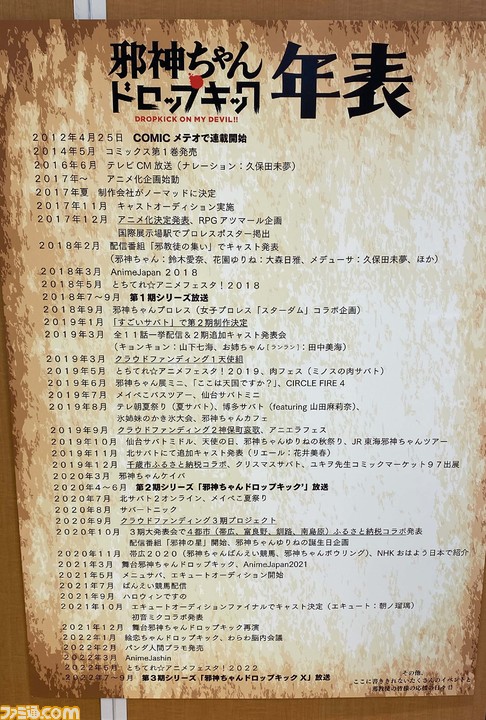 邪神ちゃん
ドロップキック
DROPKICK ON MY DEVIL!!
年表
2012年4月25日 COMIC メテオで連載開始
2014年5月 コミックス第1巻発売
2016年6月 テレビCM放送（ナレーション：久保田未夢）
2017年～ アニメ化企画始動
2017年夏 制作会社がノーマッドに決定
2017年11月 キャストオーディション実施
2017年12月 アニメ化決定発表、RPGアツマール企画
国際展示場駅でプロレスポスター掲出
2018年2月 配信番組「邪教徒の集い」でキャスト発表
（邪神ちゃん：鈴木愛奈、花園ゆりね：大森日雅、メデューサ：久保田未夢、ほか）
2018年3月 AnimeJapan 2018
2018年5月 とちてれ☆アニメフェスタ！2018
2018年7～9月 第1期シリーズ放送
2018年9月 邪神ちゃんプロレス（女子プロレス「スターダム」コラボ企画）
2019年1月 「すごいサバト」で第2期制作決定
2019年3月 全11話一挙配信＆2期追加キャスト発表会
（キョンキョン：山下七海、お姉ちゃん［ランラン］：田中美海）
2019年3月 クラウドファンディング1天使組
2019年5月 とちてれ☆アニメフェスタ！2019、肉フェス（ミノスの肉サバト）
2019年6月 邪神ちゃん展ミニ、「ここは天国ですか？」、CIRCLE FIRE 4
2019年7月 メイぺこバスツアー、仙台サバトミニ
2019年8月 テレ朝夏祭り（夏サバト）、博多サバト（featuring 山田麻莉奈）、
氷姉妹のかき氷大会、邪神ちゃんカフェ
2019年9月 クラウドファンディング2神保町哀歌、アニエラフェス
2019年10月 仙台サバトミドル、天使の日、邪神ちゃんゆりねの秋祭り、JR東海邪神ちゃんツアー
2019年11月 北サバトにて追加キャスト発表（リエール：花井美春）
2019年12月 千歳市ふるさと納税コラボ、クリスマスサバト、ユキヲ先生コミックマーケット97出展
2020年3月 邪神ちゃんケイバ
2020年4～6月 第2期シリーズ「邪神ちゃんドロップキック'」放送
2020年7月 北サバト2オンライン、メイぺニ夏祭り
2020年8月 サバトーニック
2020年9月 クラウドファンディング3期プロジェクト
2020年10月 3期大発表会で4都市（帯広、富良野、釧路、南島原）ふるさと納税コラボ発表
配信番組「邪神の星」開始、邪神ちゃんゆりねの誕生日企画
2020年11月 帯広2020（邪神ちゃんばんえい競馬、邪神ちゃんボウリング）、NHKおはよう日本で紹介
2021年3月 舞台邪神ちゃんドロップキック、AnimeJapan2021
2021年5月 メニュサバ、エキュートオーディション開始
2021年7月 ばんえい競馬配信
2021年9月 ハロウィンですの
2021年10月 エキュートオーディションファイナルでキャスト決定（エキュート：朝ノ瑠璃）
初音ミクコラボ発表
2021年12月 舞台邪神ちゃんドロップキック再演
2022年1月 絵恋ちゃんドロップキック、わらわ脳内会議
2022年2月 パンダ人間プラモ発売
2022年3月 AnimeJashin
2022年5月 とちてれ☆アニメフェスタ！2022
2022年7～9月 第3期シリーズ「邪神ちゃんドロップキックX」放送
その他、
ここに書ききれないたくさんのイベントと
邪教徒の皆様の応援の日々！
ファミ通.com